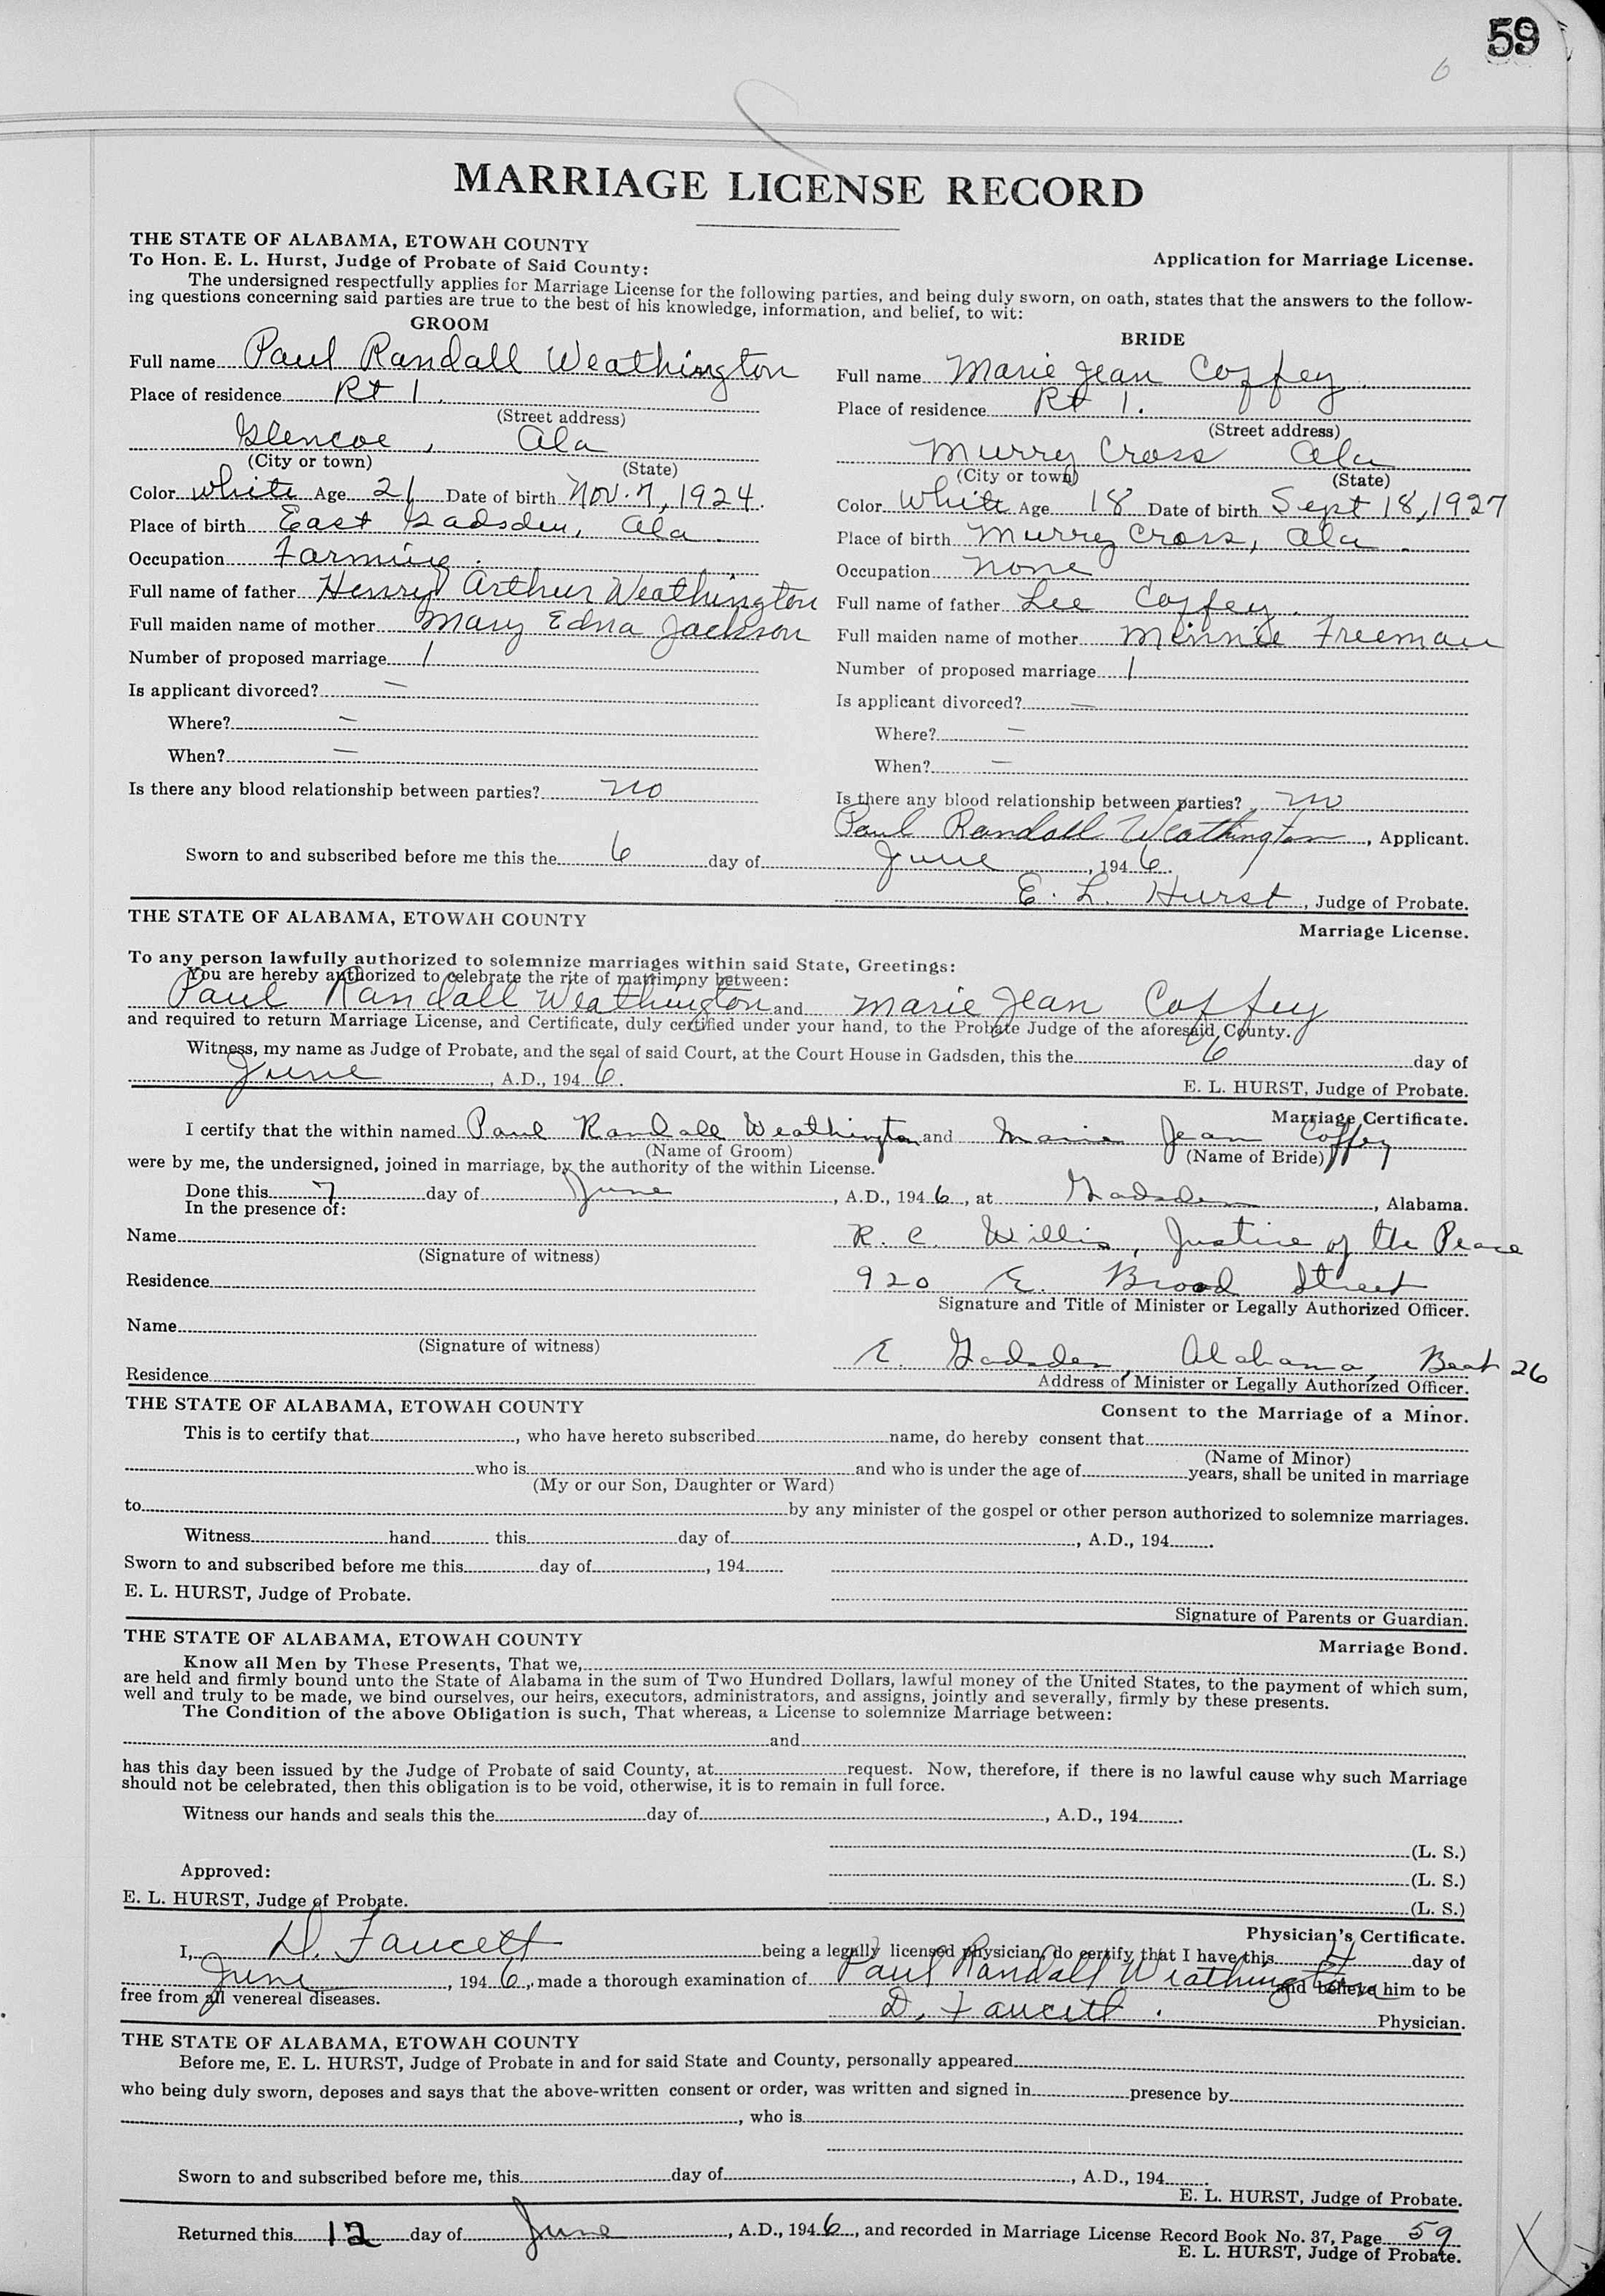 59
6
MARRIAGE LICENSE RECORD
THE STATE OF ALABAMA, ETOWAH COUNTY
To Hon. E. L. Hurst, Judge of Probate of Said County:
Application for Marriage License.
The undersigned respectfully applies for Marriage License for the following parties, and being duly sworn, on oath, states that the answers to the follow-
ing questions concerning said parties are true to the best of his knowledge, information, and belief, to wit:
GROOM
Full name Paul Randall Weathington
Place of residence Rt 1.
(Street address)
Glencoe, Ala
(City or town) (State)
Color white Age 21 Date of birth Nov. 7, 1924.
Place of birth East Gadsden, Ala.
Occupation Farming.
Full name of father Henry Arthur Weathington
Full maiden name of mother Mary Edna Jackson
Number of proposed marriage 1
Is applicant divorced? —
Where? —
When? —
Is there any blood relationship between parties? no
BRIDE
Full name Marie Jean Coffey
Place of residence Rt 1.
(Street address)
Murry Cross Ala
(City or town) (State)
Color White Age 18 Date of birth Sept 18, 1927
Place of birth Murry Cross, Ala.
Occupation none
Full name of father Lee Coffey.
Full maiden name of mother Minnie Freeman
Number of proposed marriage 1
Is applicant divorced? —
Where? —
When? —
Is there any blood relationship between parties? no
Paul Randall Weathington, Applicant.
Sworn to and subscribed before me this the 6 day of June, 1946.
E. L. Hurst, Judge of Probate.
THE STATE OF ALABAMA, ETOWAH COUNTY
Marriage License.
To any person lawfully authorized to solemnize marriages within said State, Greetings:
You are hereby authorized to celebrate the rite of matrimony between:
Paul Randall Weathington and Marie Jean Coffey
and required to return Marriage License, and Certificate, duly certified under your hand, to the Probate Judge of the aforesaid County.
Witness, my name as Judge of Probate, and the seal of said Court, at the Court House in Gadsden, this the 6 day of
June, A.D., 1946.
E. L. HURST, Judge of Probate.
Marriage Certificate.
I certify that the within named Paul Randall Weathington and Marie Jean Coffey
(Name of Groom) (Name of Bride)
were by me, the undersigned, joined in marriage, by the authority of the within License.
Done this 7 day of June, A.D., 1946, at Gadsden, Alabama.
In the presence of:
Name
(Signature of witness)
R. C. Willis, Justice of the Peace
Residence
920 E. Broad Street
Signature and Title of Minister or Legally Authorized Officer.
Name
(Signature of witness)
E. Gadsden, Alabama, Beat 26
Residence
Address of Minister or Legally Authorized Officer.
THE STATE OF ALABAMA, ETOWAH COUNTY
Consent to the Marriage of a Minor.
This is to certify that, who have hereto subscribed name, do hereby consent that
(Name of Minor)
who is and who is under the age of years, shall be united in marriage
(My or our Son, Daughter or Ward)
to by any minister of the gospel or other person authorized to solemnize marriages.
Witness hand this day of, A.D., 194
Sworn to and subscribed before me this day of, 194
E. L. HURST, Judge of Probate.
Signature of Parents or Guardian.
THE STATE OF ALABAMA, ETOWAH COUNTY
Marriage Bond.
Know all Men by These Presents, That we,
are held and firmly bound unto the State of Alabama in the sum of Two Hundred Dollars, lawful money of the United States, to the payment of which sum,
well and truly to be made, we bind ourselves, our heirs, executors, administrators, and assigns, jointly and severally, firmly by these presents.
The Condition of the above Obligation is such, That whereas, a License to solemnize Marriage between:
and
has this day been issued by the Judge of Probate of said County, at request. Now, therefore, if there is no lawful cause why such Marriage
should not be celebrated, then this obligation is to be void, otherwise, it is to remain in full force.
Witness our hands and seals this the day of, A.D., 194.
(L. S.)
Approved:
(L. S.)
E. L. HURST, Judge of Probate.
(L. S.)
Physician's Certificate.
I, D. Faucett being a legally licensed physician, do certify that I have this 4 day of
June, 1946, made a thorough examination of Paul Randall Weathington and believe him to be
free from all venereal diseases.
D. Faucett. Physician.
THE STATE OF ALABAMA, ETOWAH COUNTY
Before me, E. L. HURST, Judge of Probate in and for said State and County, personally appeared
who being duly sworn, deposes and says that the above-written consent or order, was written and signed in presence by
, who is
Sworn to and subscribed before me, this day of, A.D., 194
E. L. HURST, Judge of Probate.
Returned this 12 day of June, A.D., 1946, and recorded in Marriage License Record Book No. 37, Page 59
E. L. HURST, Judge of Probate.
X